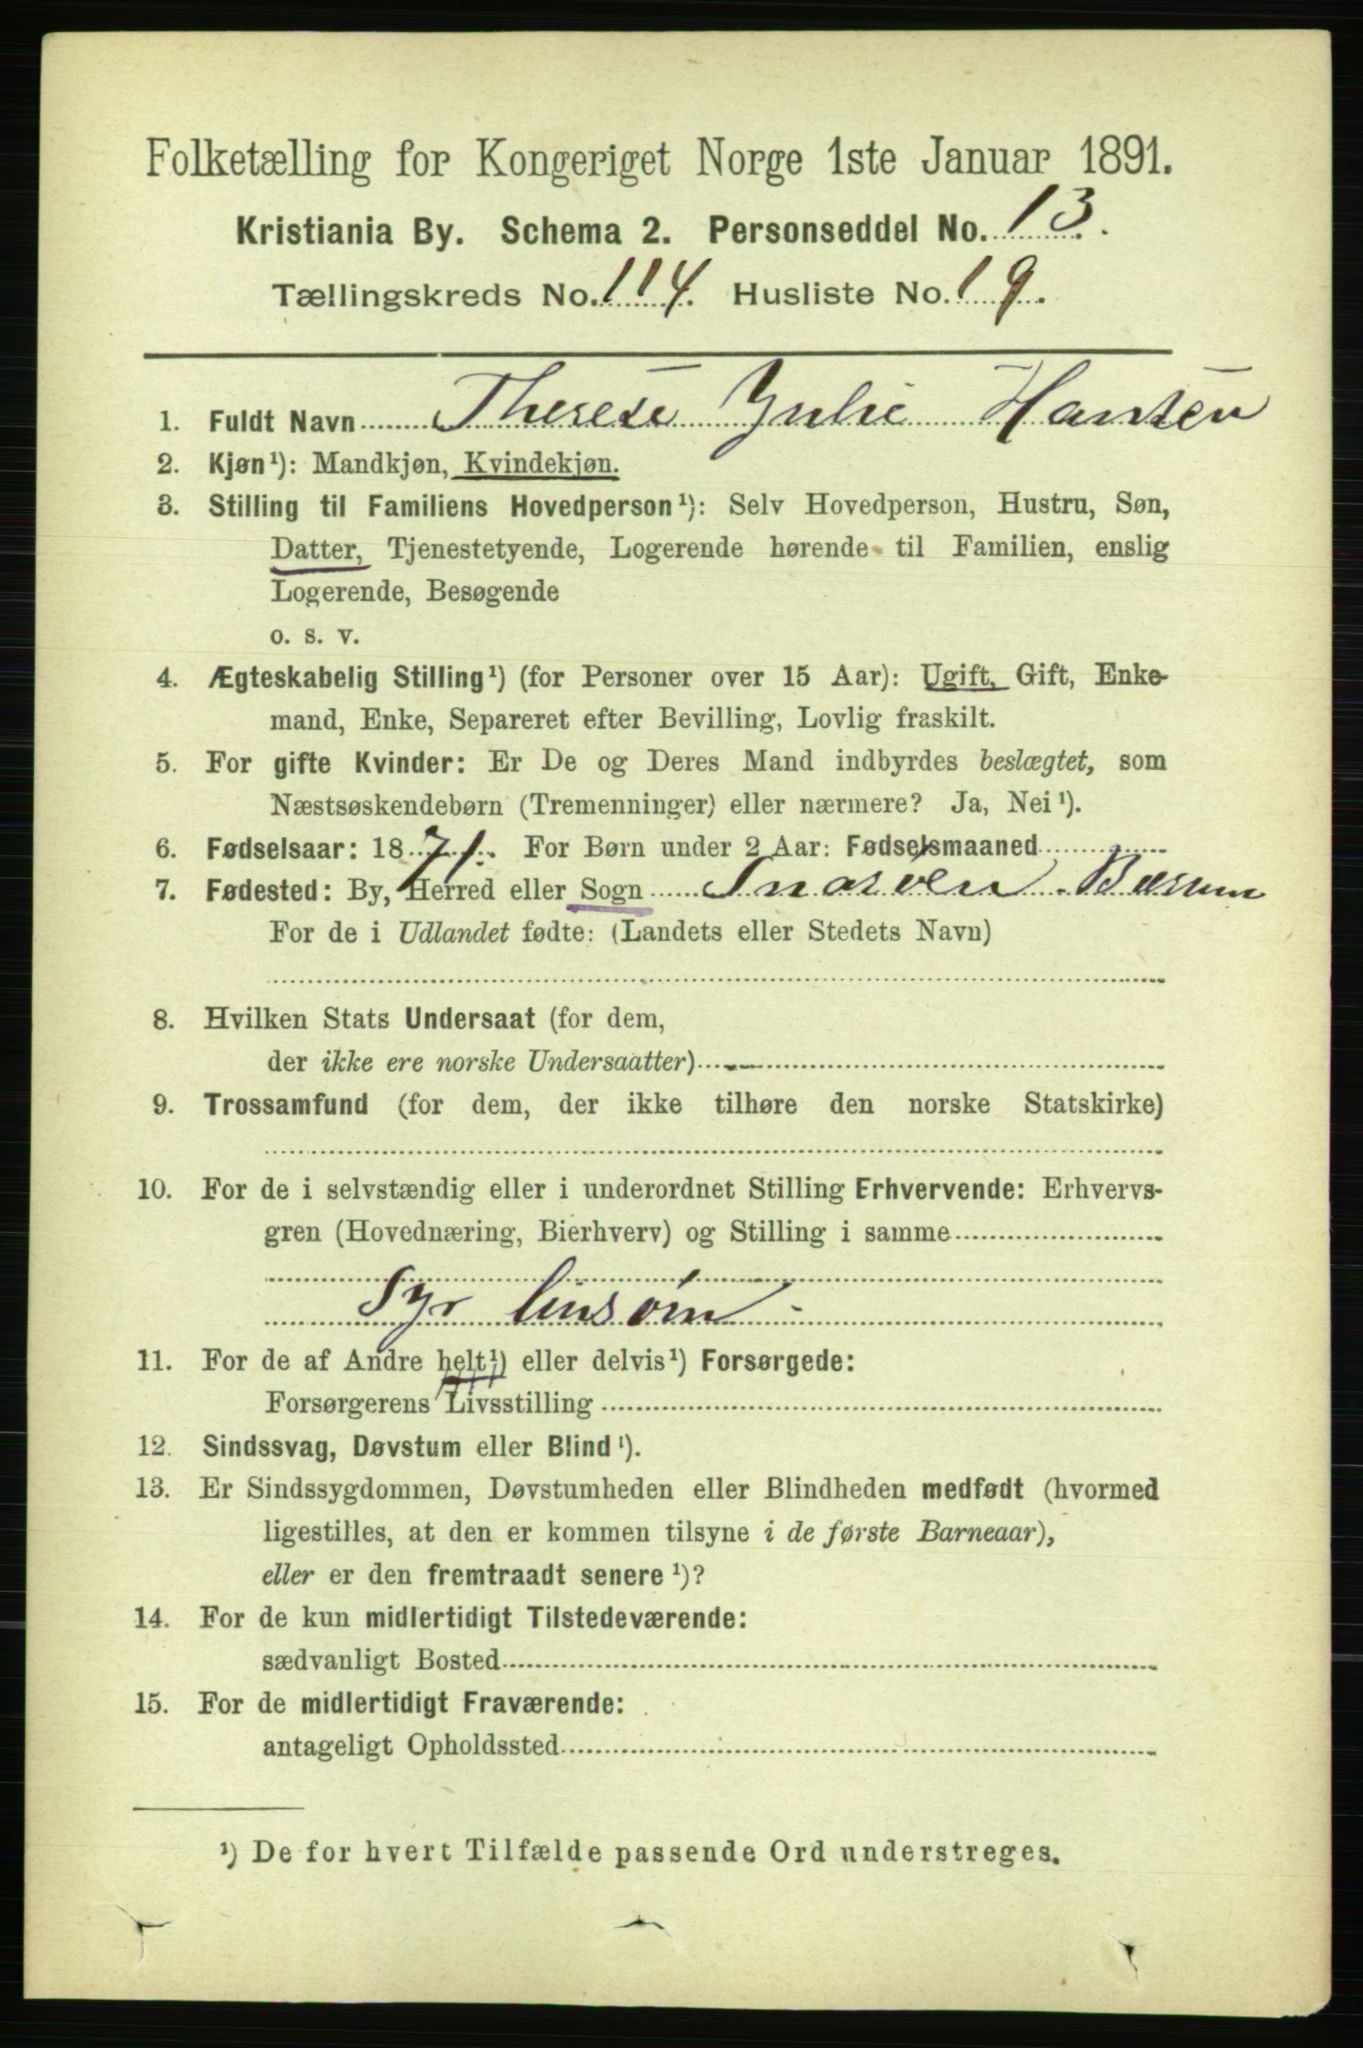 Folketælling for Kongeriget Norge 1ste Januar 1891.
Kristiania By. Schema 2. Personseddel No. 13.
Tællingskreds No. 114. Husliste No. 19.
1. Fuldt Navn Therese Julie Hansen
2. Kjøn¹): Mandkjøn, Kvindekjøn.
3. Stilling til Familiens Hovedperson¹): Selv Hovedperson, Hustru, Søn,
Datter, Tjenestetyende, Logerende hørende til Familien, enslig
Logerende, Besøgende
o. s. v.
4. Ægteskabelig Stilling¹) (for Personer over 15 Aar): Ugift, Gift, Enke-
mand, Enke, Separeret efter Bevilling, Lovlig fraskilt.
5. For gifte Kvinder: Er De og Deres Mand indbyrdes beslægtet, som
Næstsøskendebørn (Tremenninger) eller nærmere? Ja, Nei¹).
6. Fødselsaar: 1871. For Børn under 2 Aar: Fødselsmaaned
7. Fødested: By, Herred eller Sogn Snarøen Bærum
For de i Udlandet fødte: (Landets eller Stedets Navn)
8. Hvilken Stats Undersaat (for dem,
der ikke ere norske Undersaatter)
9. Trossamfund (for dem, der ikke tilhøre den norske Statskirke)
10. For de i selvstændig eller i underordnet Stilling Erhvervende: Erhvervs-
gren (Hovednæring, Bierhverv) og Stilling i samme
Syr linsøm
11. For de af Andre helt¹) eller delvis¹) Forsørgede:
Forsørgerens Livsstilling
12. Sindssvag, Døvstum eller Blind¹).
13. Er Sindssygdommen, Døvstumheden eller Blindheden medfødt (hvormed
ligestilles, at den er kommen tilsyne i de første Barneaar),
eller er den fremtraadt senere¹)?
14. For de kun midlertidigt Tilstedeværende:
sædvanligt Bosted
15. For de midlertidigt Fraværende:
antageligt Opholdssted
¹) De for hvert Tilfælde passende Ord understreges.